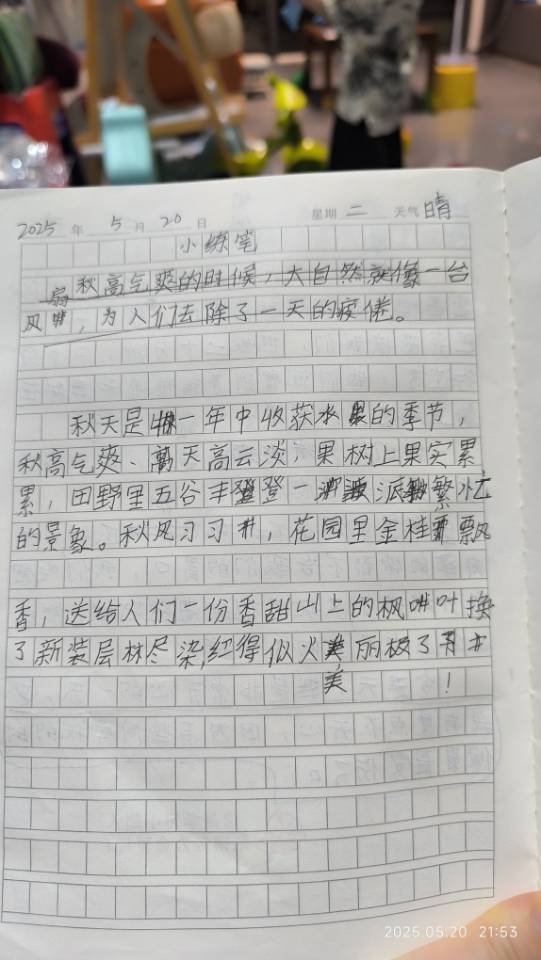 2025 年 5 月 20 日 星期 二 天气 晴
小练笔
秋高气爽的时候，大自然就像一台
风扇，为人们去除了一天的疲倦。
秋天是一年中收获水果的季节，
秋高气爽、天高云淡；果树上果实累
累，田野里五谷丰登一派繁忙
的景象。秋风习习，花园里金桂飘
香，送给人们一份香甜山上的枫叶换
了新装层林尽染,红得似火美丽极了
美 ！
2025.05.20 21:53